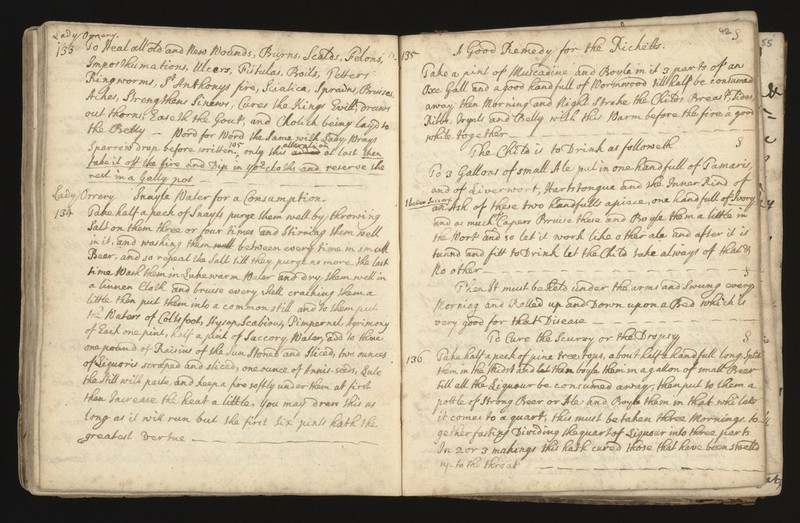 Lady Orrery.
133 To Heal all old and New Wounds, Burns, Scalds, Felons,
Imposthumations, Ulcers, Fistulas, Boils, Tetters
Ringworms, St Anthonys fire, Sciatica, Sprains, Bruises
Aches, Strengthens Sinews, Cures the Kings Evill, draws
out thorns, Easeth the Gout, and Cholick being layd to
the Belly — Word for Word the Same with Lady Wrays
Sparrowdrop before written, 105 only this alteration at last then
take it off the fire and Dip in your cloths and reserve the
rest in a Gally pot
Lady Orrery Snayle Water for a Consumption.
134 Take half a peck of Snayls purge them well by throwing
Salt on them three or four times and Stirring them well
in it, and washing them well between every time in small
Beer, and so repeat the Salt till they purge no more, the last
time Wash them in Lukewarm Water and dry them well in
a linnen Cloth and bruise every shell cracking them a
little then put them into a common still and to them put
the Waters of Coltsfoot, Hysop, Scabious, Pimpernel, Agrimony
of Each one pint, half a pint of Saccory Water, add to these
one pound of Raisins of the sun Stoned and Sliced, two ounces
of Liquoris scraped and sliced, one ounce of Annis-seeds, Lute
the Still with paste, and keep a fire softly under them at first
then Increase the heat a little. You may draw this as
long as it will run but the first Six pints hath the
greatest Vertue
42
135 A Good Remedy for the Ricketts.
Take a pint of Muscadine and Boyle in it 3 parts off an
Oxe Gall and a good handfull of Wormwood till half be consumed
away then Morning and Night Stroke the Childs Breast, Sides,
Ribbs, and Belly with this Warm before the fire a good
while together
The Child is to Drink as followeth
To 3 Gallons of small Ale put in one handfull of Tamaris,
and of Liverwort, Hartstongue and the Inner Rind of
an Ash of these two handfulls apiece, one handfull of Ivory
and as much Capers Bruise these and Boyle them a little in
the Wort and so let it work like other ale and after it is
tunnd and fitt to Drink let the Child take always of that &
No other
Then It must be under the arms and Swung every
Morning and Rolled up and Down upon a Bed which is
very good for that Disease
To Cure the Scurvy or the Dropsy
136 Take half a peck of pine tree tops, about half a handfull long Split
them in the Midst and let them boyle them in a gallon of small Beer
till all the Liquour be consumed away, then put to them a
pottle of Strong Beer or Ale and Boyle them in that while
it comes to a quart, this must be taken three Mornings to
gether fasting Dividing the quart of Liquour into three parts
In 2 or 3 makings this hath cured those that have been swelld
up to the throat
55